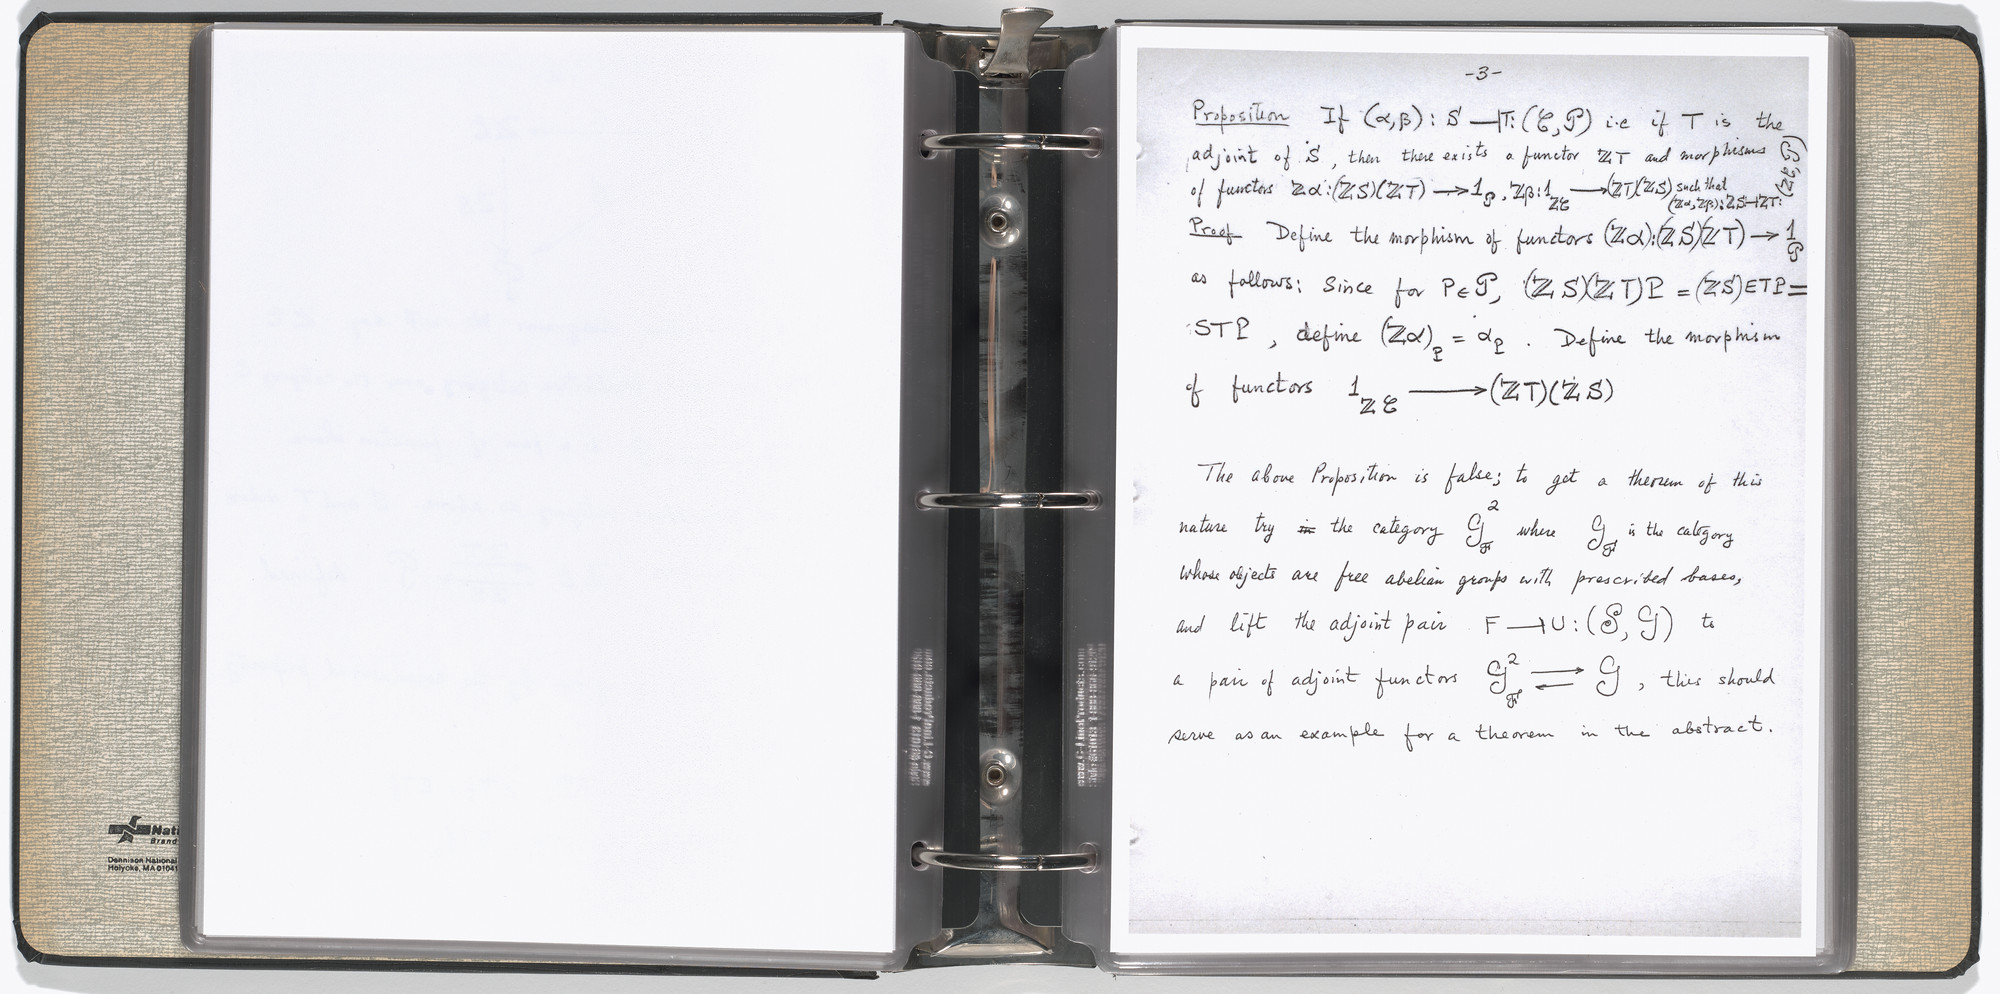 National
Brand
Dennison National
Holyoke, MA 01041
-3-
Proposition If (α,β): S ⊣ T: (𝒞, 𝒫) i.e if T is the
adjoint of S, then there exists a functor ℤT and morphisms
of functors ℤα: (ℤS)(ℤT) ⟶ 1_𝒫, ℤβ: 1_ℤ𝒞 ⟶ (ℤT)(ℤS) such that
(ℤα, ℤβ): ℤS ⊣ ℤT: (ℤ𝒞, 𝒫)
Proof Define the morphism of functors (ℤα): (ℤS)(ℤT) → 1_𝒫
as follows: Since for P ∈ 𝒫, (ℤS)(ℤT)P = (ℤS)ETP =
STP, define (ℤα)_P = α_P. Define the morphism
of functors 1_ℤ𝒞 ⟶ (ℤT)(ℤS)
The above Proposition is false; to get a theorem of this
nature try the category 𝒢_ℱ² where 𝒢_ℱ is the category
whose objects are free abelian groups with prescribed bases,
and lift the adjoint pair F ⊣ U: (𝒮, 𝒢) to
a pair of adjoint functors 𝒢_ℱ² ⇄ 𝒢, this should
serve as an example for a theorem in the abstract.